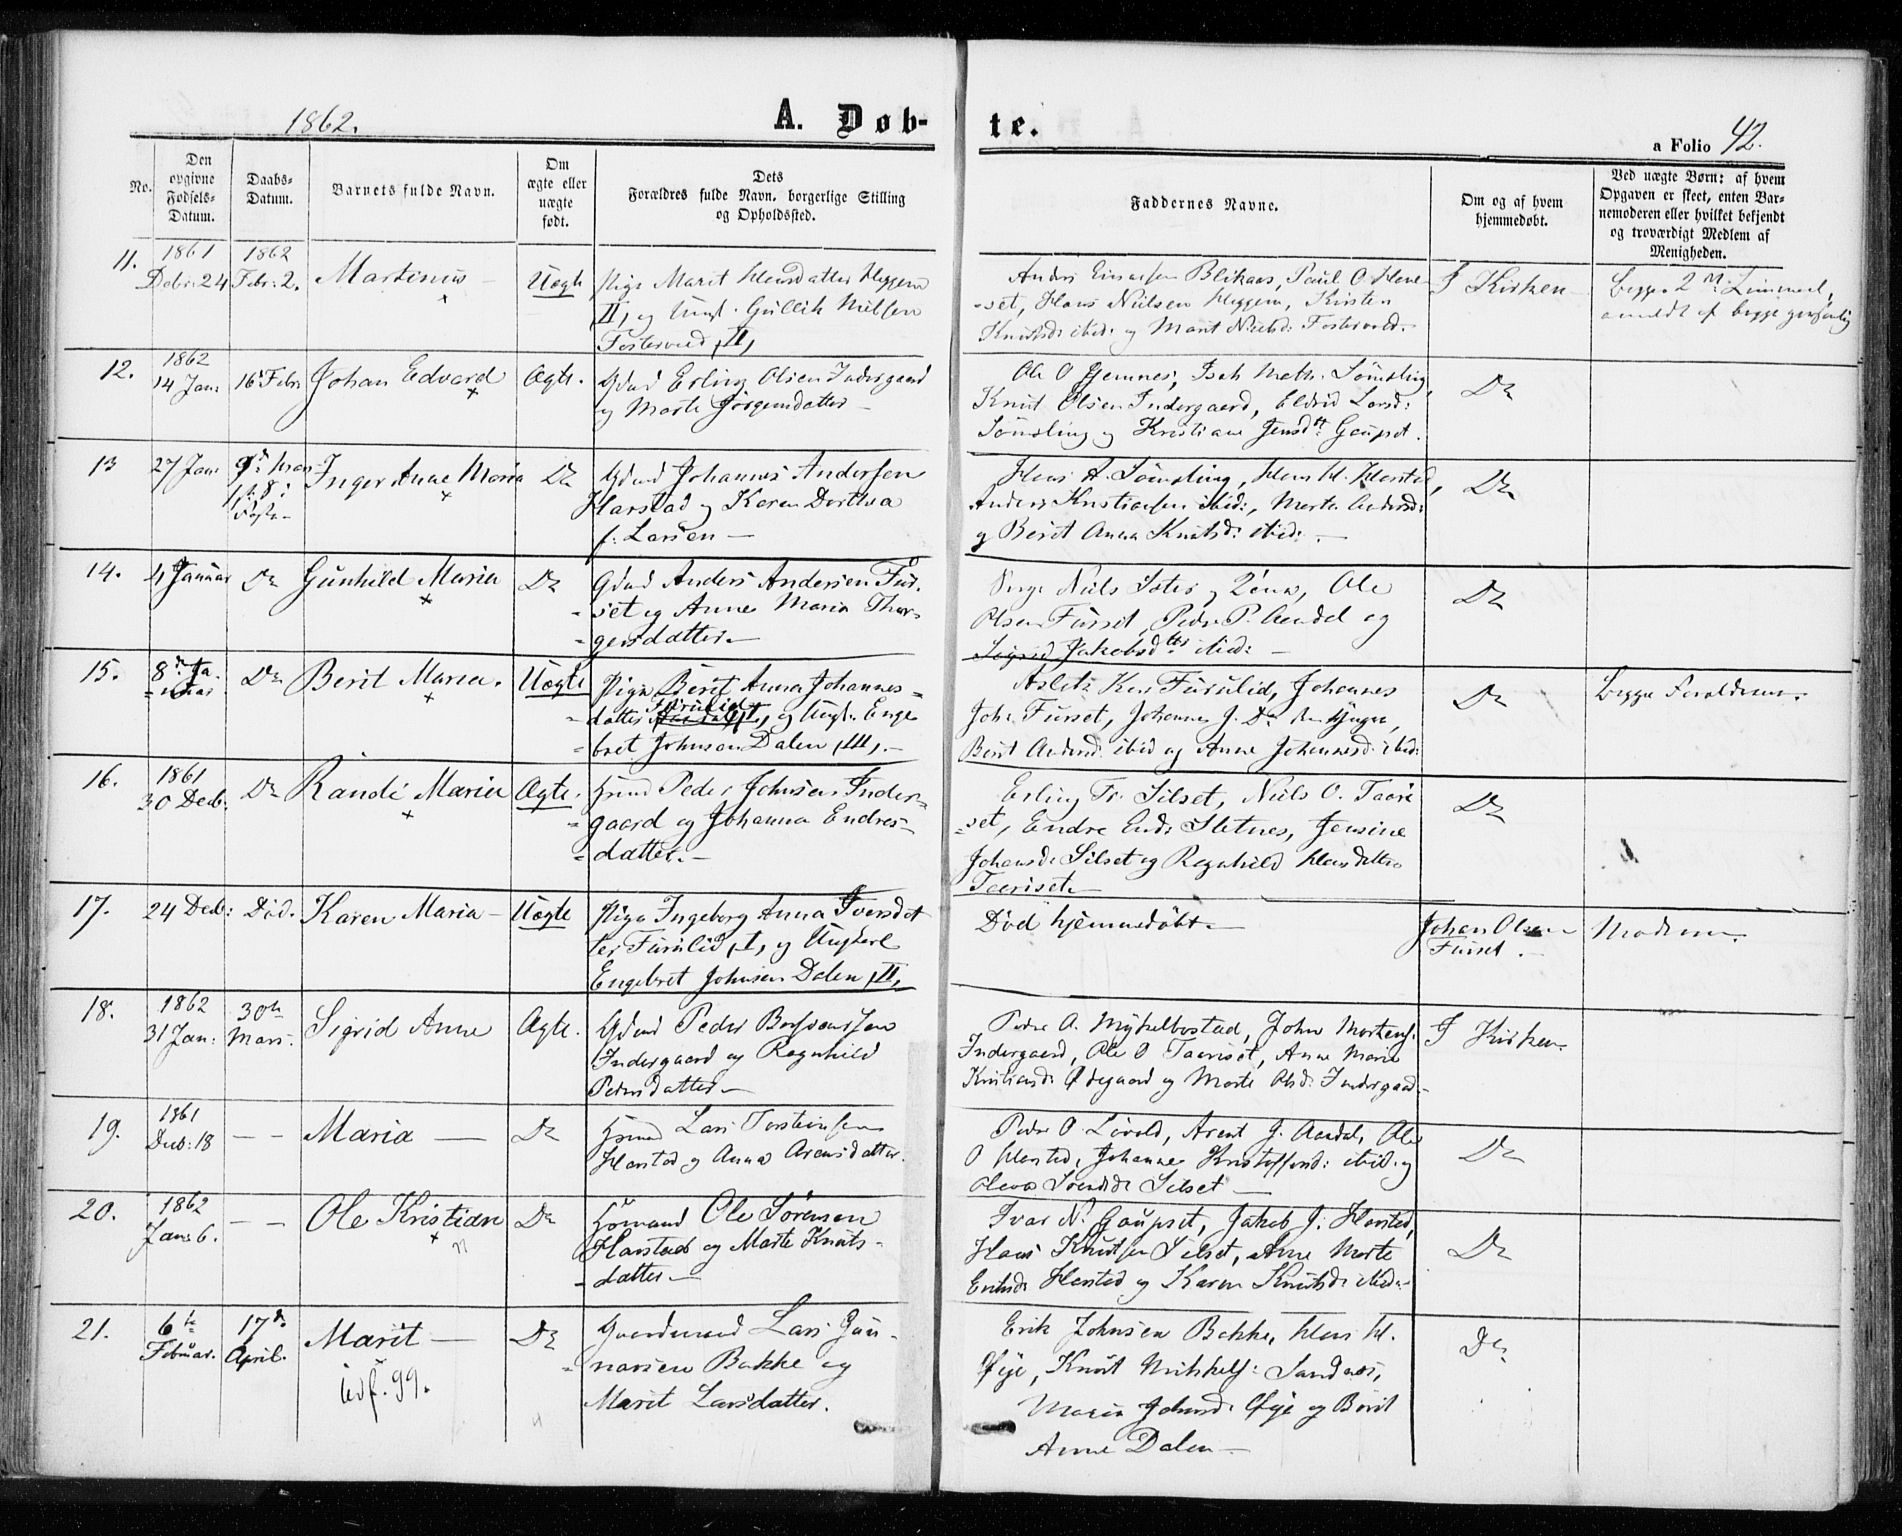 1862.
A. Døb-
te.
a Folio 42.
No.
Den
opgivne
Fødsels-
Datum.
Daabs-
Datum.
Barnets fulde Navn.
Om
ægte eller
uægte
født.
Dets
Forældres fulde Navn, borgerlige Stilling
og Opholdssted.
Faddernes Navne.
Om og af hvem
hjemmedøbt.
Ved uægte Børn: af hvem
Opgaven er skeet, enten Bar-
nemoderen eller hvilket bekjendt
og troværdigt Medlem af
Menigheden.
11.
1861
Decbr: 24
1862
Febr: 2.
Martinus
Uægte
Pige Marit Hansdatter Heggem
II, og Ungk. Gullik Nielsen
Fostervold, II,
Anders Einarsen Blikaas, Paul O
-set, Hans Nielsen Heggem, Kirsten
Knutsd: ibid: og Marit Nielsd: Fostervold.
I Kirken
Begge
af begge
12.
1862
14 Jan:
16 Febr
Johan Edvard
Ægte.
Gbmd Erling Olsen Indergaard
og Marte Jørgensdatter
Ole O Gjemnes, Isak Meth:
Knut Olsen Indergaard, Eldrid Larsd:
og Kristiane Jensdtr Gaupset.
Do
13
27 Jan:
9de Mars
1st S: i
Faste
Inger Anne Maria
Do
Gbmd Johannes Andersen
Harstad og Karen Dorthea
f. Larsen
Hans A. Hans H. Harstad,
Anders Kristiansen ibid:, Marte Andersd:
og Berit Anna Knutsd: ibid:
Do
14.
4 Januar
Do
Gunhild Maria
Do
Gbmd Anders Andersen Fur-
-set og Anne Maria Thor-
-gersdatter
Niels og Kona, Ole
Olsen Furset, Peder P. Aandal og
Sigrid Jakobsdtr ibid:
Do
15.
8de Ja-
-nuar
Do
Berit Maria.
Uægte
Pige Berit Anna Johannes-
-datter Furulid I, og Ungk. Enge-
-bret Johnsen Dalen, III,
Furulid, Johannes
Joh: Furset, Johannes J. Do den Yngre,
Berit Andersd: ibid og Anne Johannesd: ibid:
Do
Begge Forældrene.
16.
1861
30 Decb.
Do
Randi Maria
Ægte.
Hsmd Peder Johnsen Inder-
-gaard og Johanna Endres-
-datter.
Erling Tr. Silset, Niels O. Taari-
-set, Endre Ends: Sletnes, Jensine
Johansd: Silset og Ragnhild Hansdatter
Taariset.
Do
17.
24 Decb:
Død.
Karen Maria
Uægte
Pige Ingeborg Anna Iversdat-
ter Furulid, I, og Ungkarl
Engebret Johnsen Dalen, II,
Død hjemmedøbt.
Johan Olsen
Furset.
Moderen.
18.
1862
31 Jan:
30te
Mars.
Sigrid Anne
Ægte.
Gbmd Peder
Indergaard og Ragnhild
Pedersdatter
Peder A. Mykelbostad, John Mortens:
Indergaard, Ole O Taariset, Anne Marie
Kristiansd: Ødegaard og Marte Olsd: Indergaard.
I Kirken.
19.
1861
Decb: 18
— —
Maria
Do
Hsmd Lars Torsteinsen
Harstad og Anna Arensdatter.
Peder O. Arent J. Aandal, Ole
O Harstad, Johanne Kristoffersd: ibid: og
Silset
Do
20.
1862
Jan: 6.
— —
Ole Kristian
Do
Husmand Ole Sørensen
Harstad og Marte Knuts-
-datter
Ivar N. Gaupset, Jakob J. Harstad,
Hans Knutsen Silset, Anne Marte
Eriksd: Harstad og Karen Knutsd: ibid:
Do
21.
6te
Februar.
17de
April.
Marit
Udf. 99.
Do
Gaardmand Lars Gun-
narsen Bakke og
Marit Larsdatter.
Erik Johnsen Bakke, Hans H.
Øye, Knut Mikkels: Sandnes,
Maria Johnsd: Øye og Berit
Anne Dalen
Do